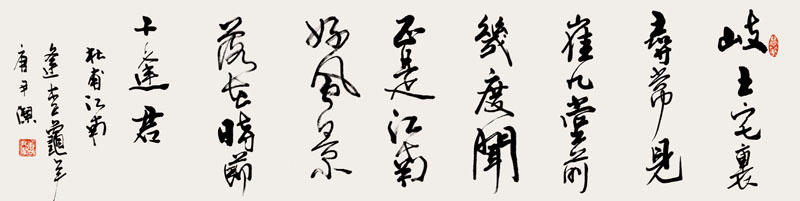 岐王宅裏
尋常見
崔九堂前
幾度聞
正是江南
好風景
落花時節
又逢君
杜甫江南
逢李龜年
唐